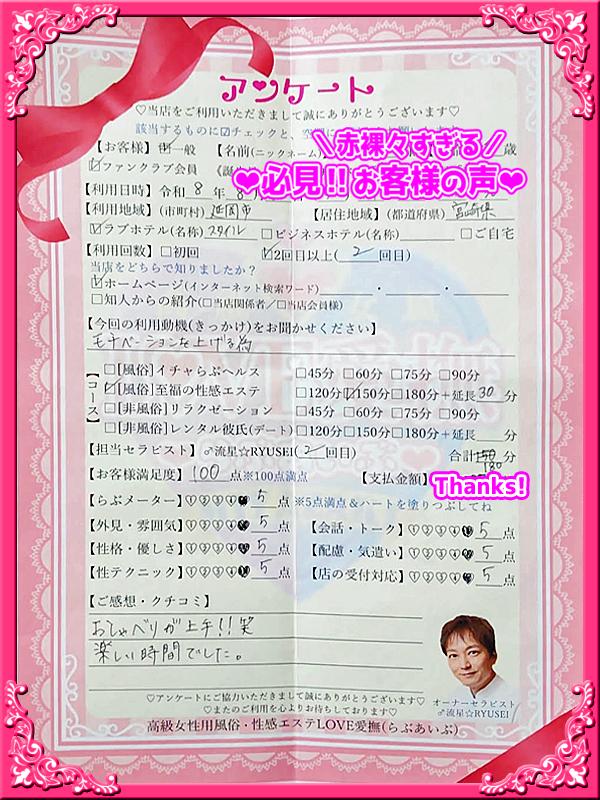 アンケート
♡当店をご利用いただきまして誠にありがとうございます♡
該当するものに☑チェックと、空
＼赤裸々すぎる／
❤必見!!お客様の声❤
【お客様】☑一般 【名前(ニックネーム) 歳
☑ファンクラブ会員
【利用日時】令和 8 年 8
【利用地域】(市町村) 延岡市 【居住地域】(都道府県) 宮崎県
☑ラブホテル(名称) スタイル □ビジネスホテル(名称) □ご自宅
【利用回数】□初回 ☑2回目以上( 2 回目)
当店をどちらで知りましたか？
☑ホームページ(インターネット検索ワード) ・ ・
□知人からの紹介(□当店関係者／□当店会員様)
【今回の利用動機(きっかけ)をお聞かせください】
モチベーションを上げる為
【コース】
□[風俗]イチャらぶヘルス □45分 □60分 □75分 □90分
☑[風俗]至福の性感エステ □120分 ☑150分 □180分+延長 30 分
□[非風俗]リラクゼーション □45分 □60分 □75分 □90分
□[非風俗]レンタル彼氏(デート) □120分□150分□180分+延長 分
【担当セラピスト】♂流星☆RYUSEI( 2 回目) 合計 180 分
【お客様満足度】 100 点※100点満点 【支払金額】
Thanks!
【らぶメーター】①②③④❤ 5 点 ※5点満点＆ハートを塗りつぶしてね
【外見・雰囲気】①②③④❤ 5 点 【会話・トーク】①②③④❤ 5 点
【性格・優しさ】①②③④❤ 5 点 【配慮・気遣い】①②③④❤ 5 点
【性テクニック】①②③④❤ 5 点 【店の受付対応】①②③④❤ 5 点
【ご感想・クチコミ】
おしゃべりが上手!!笑
楽しい時間でした。
♡アンケートにご協力いただきまして誠にありがとうございます♡
♡またのご利用を心よりお待ちしております♡
オーナーセラピスト
♂流星☆RYUSEI
高級女性用風俗・性感エステLOVE愛撫(らぶあいぶ)